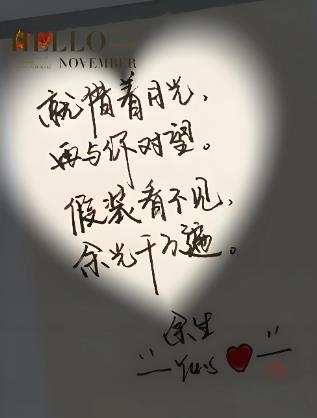 HELLO
NOVEMBER
就借着月光，
再与你对望。
假装看不见，
余光千万遍。
余生